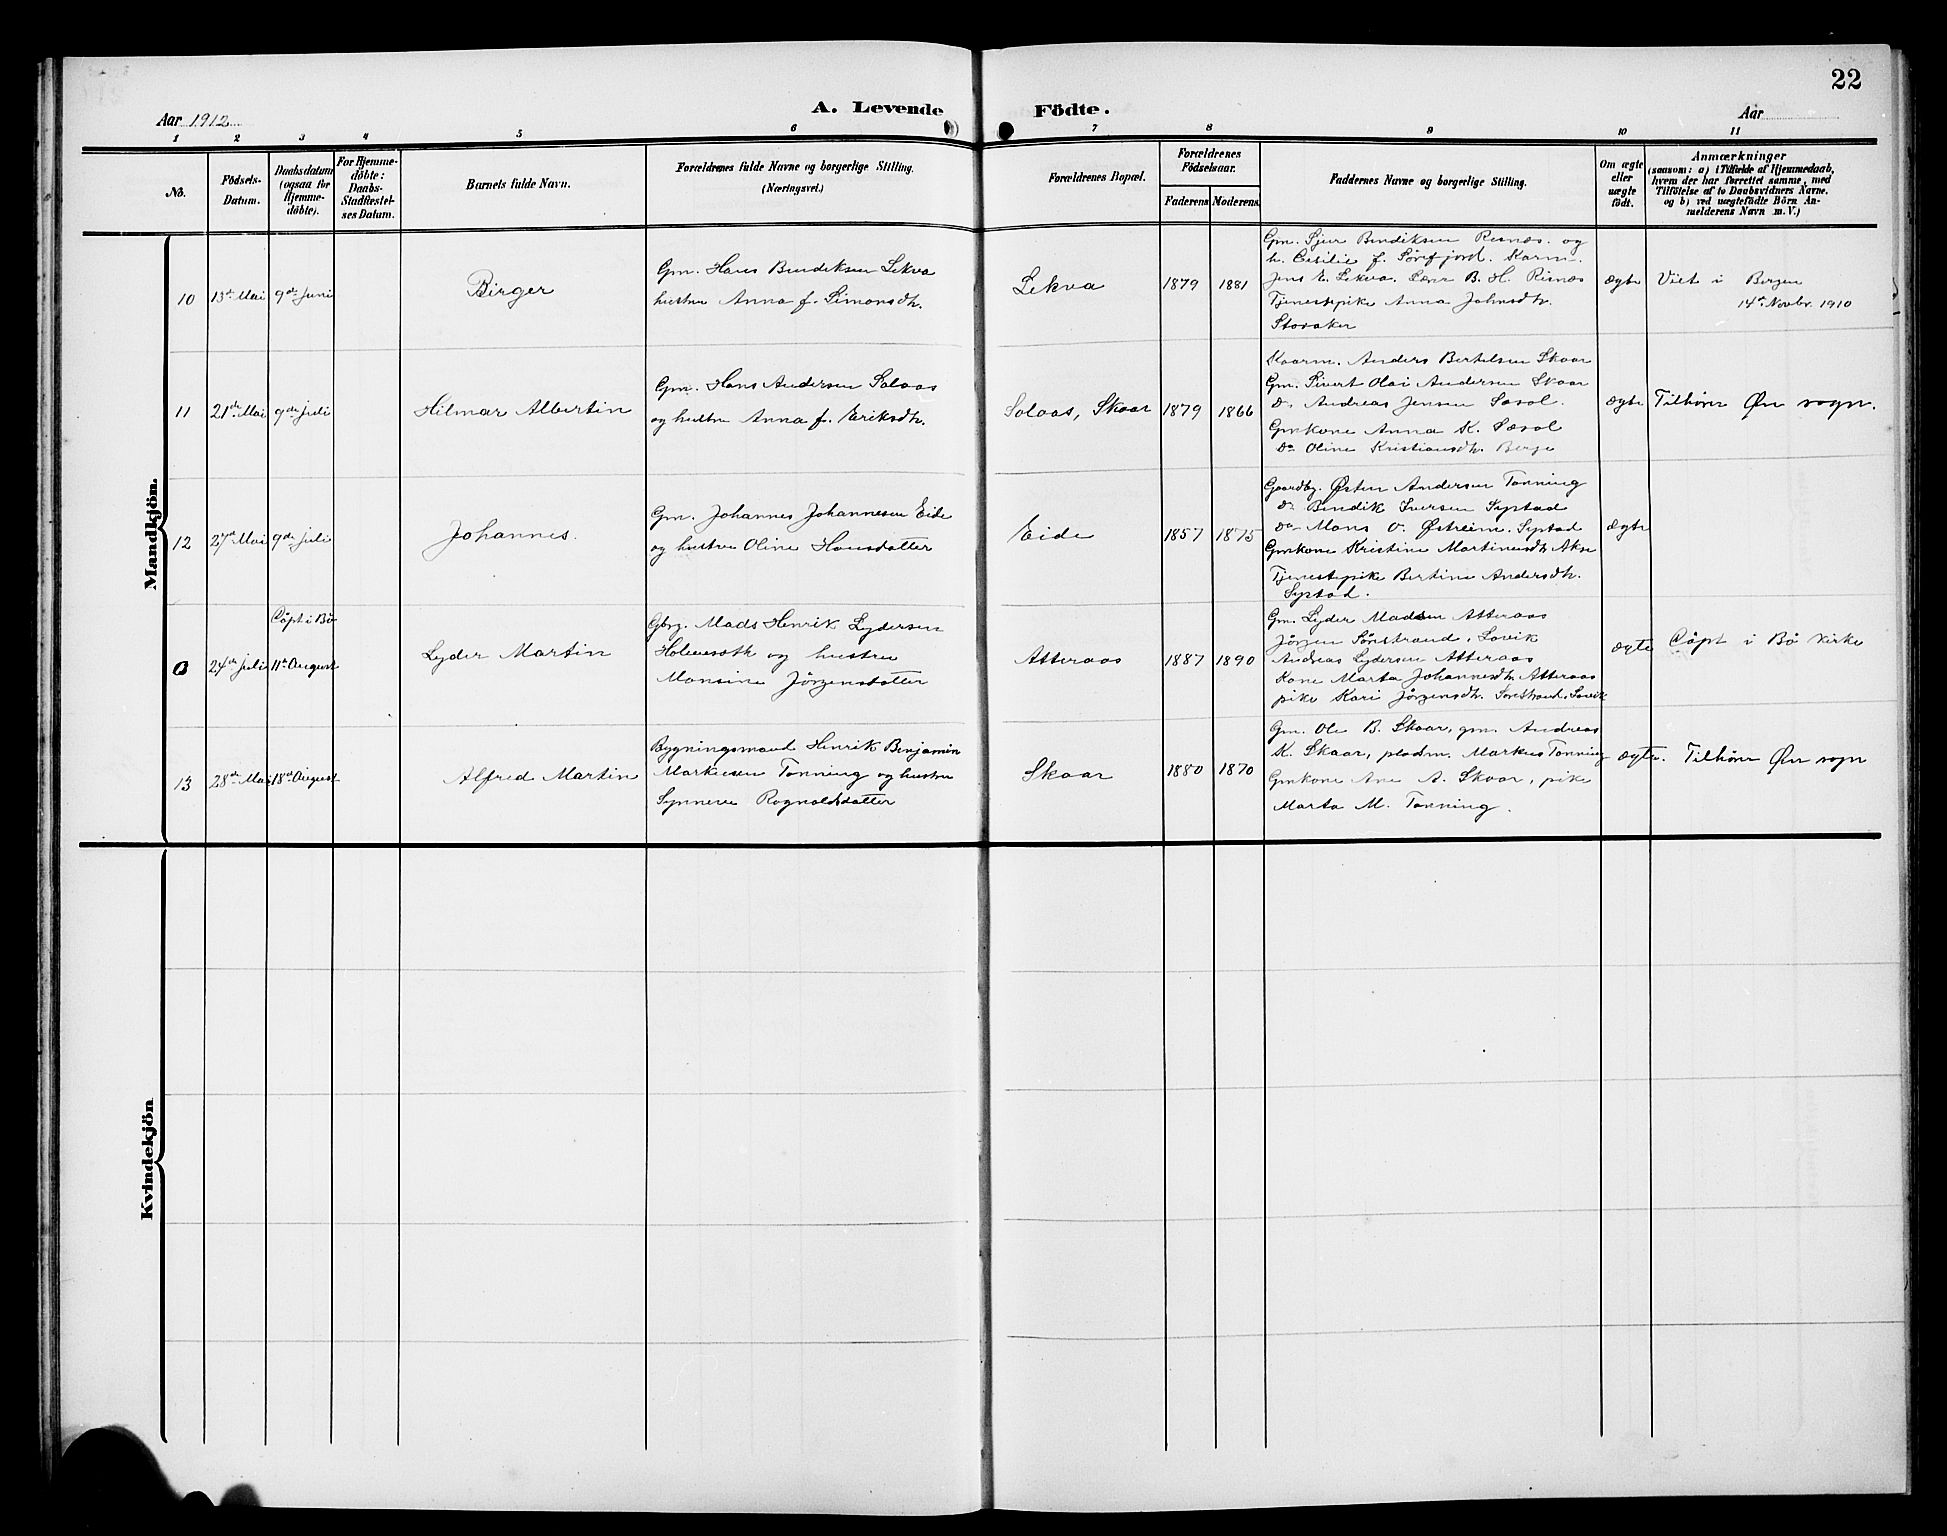 22
Aar 1912
A. Levende
Födte.
Aar
1 2 3 4 5 6 7 8 9 10 11
No.
Födsels-
Datum.
Daabsdatum
(ogsaa for
Hjemme-
döbte).
For Hjemme-
döbte:
Daabs-
Stadfæstel-
ses Datum.
Barnets fulde Navn.
Forældrenes fulde Navne og borgerlige Stilling.
(Næringsvei.)
Forældrenes Bopæl.
Forældrenes
Födselsaar.
Faderens
Moderens
Faddernes Navne og borgerlige Stilling.
Om ægte
eller
uægte
födt.
Anmærkninger
(saasom: a) i Tilfælde af Hjemmedaab,
hvem der har forrettet samme, med
Tilföielse af to Daabsvidners Navne.
og b) ved uægtefödte Börn An-
melderens Navn m. V.)
Mandkjön.
10
13de Mai
9de Juni
Birger
Gm. Hans Bendiksen Lekva
hustru Anna f. Simonsdtr.
Lekva
1879
1881
Gm. Sjur Bendiksen Risnæs. og
h. Cesilie f. Sørefjord. Karm.
Jens E. Lekva. Lærer B. H. Risnæs
Tjenestepike Anna Johnsdtr.
Storaker
ægte
Viet i Bergen
14de Novbr. 1910
11
21de Mai
9de Juli
Hilmar Albertin
Gm. Hans Andersen Solaas
og hustru Anna f. Eriksdtr.
Solaas, Skaar
1879
1866
Kaarm. Anders Bertelsen Skaar
Gm. Sivert Olai Andersen Skaar
Do Andreas Jensen Sæsol.
Gmkone Anna K. Sæsol
Do Oline Kristiansdtr. Berge
ægte
Tilhører Øn sogn.
12
27de Mai
9de Juli
Johannes.
Gm. Johannes Johannesen Eide
og hustru Oline Hansdatter
Eide
1857
1875
Gaardbg. Østen Andersen Tonning
Do Bendik Iversen Systad
Do Mons O. Østreim. Systad
Gmkone Kristine Martinusdtr. Akse
Tjenestepike Bertine Andersdtr.
Systad.
ægte
0
24de Juli
Döpt i Bö
11te August
Lyder Martin
Gbrg. Mads Henrik Lydersen
og hustru
Monsine Jörgensdatter
Atteraas
1887
1890
Gm. Lyder Madsen Atteraas
Jörgen Sörestrand, Lovik
Andreas Lydersen Atteraas
Kone Marta Johannesdtr. Atteraas
pike Kari Jörgensdtr. Sörestrand. Lovik
ægte
Döpt i Bö kirke
13
28de Mai
18de August
Alfred Martin
Bygningsmand Henrik Benjamin
Markusen Tonning og hustru
Synneve Rognaldsdatter
Skaar
1880
1870
Gm. Ole B. Skaar, gm. Andreas
K. Skaar, pladsm. Markus Tonning
Gmkone Ane A. Skaar, pike
Marta M. Tonning.
ægte.
Tilhører Øn sogn
Kvindekjön